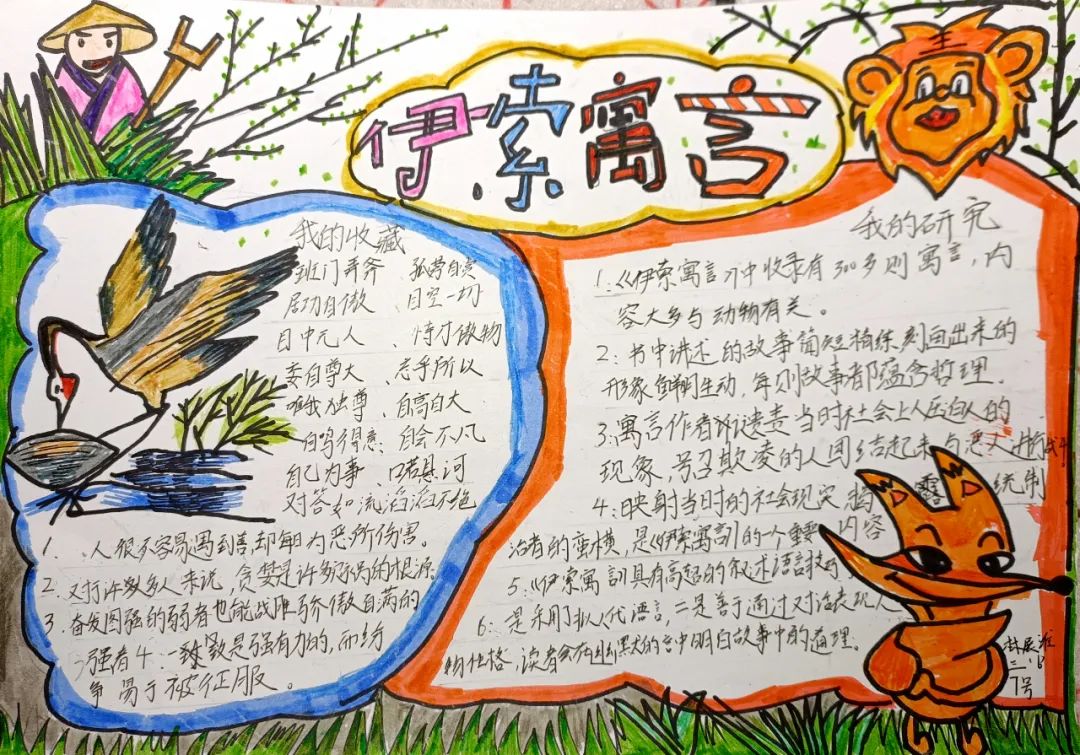 伊索寓言
王
我的收藏
班门弄斧 、孤芳自赏
居功自傲 、目空一切
目中无人 、恃才傲物
妄自尊大 、忘乎所以
唯我独尊 、自高自大
自鸣得意 、自命不凡
自己为事 、口若悬河
对答如流 滔滔不绝
1. 、人很不容易遇到善,却每日为恶所伤害。
2. 对于许多人来说,贪婪是许多祸的根源
3. 奋发图强的弱者也能战胜骄傲自满的
强者 4. 一致是强有力的,而纷
争易于被征服。
我的研究
1:《伊索寓言》中收录有300多则寓言,内
容大多与动物有关。
2: 书中讲述的故事简短精练,刻画出来的
形象鲜明生动,每则故事都蕴含哲理.
3:寓言作者谴责当时社会上人压迫人的
现象,号召欺凌的人团结起来与恶人进行战斗
4:映射当时的社会现实,揭露统制
治者的蛮横,是《伊索寓言》的个重要内容
5:《伊索寓言》具有高超的叙述语言技
6: 是采用拟人代语言,二是善于通过对话表现人
物性格,读者会在的言中明白故事中的道理.
7号